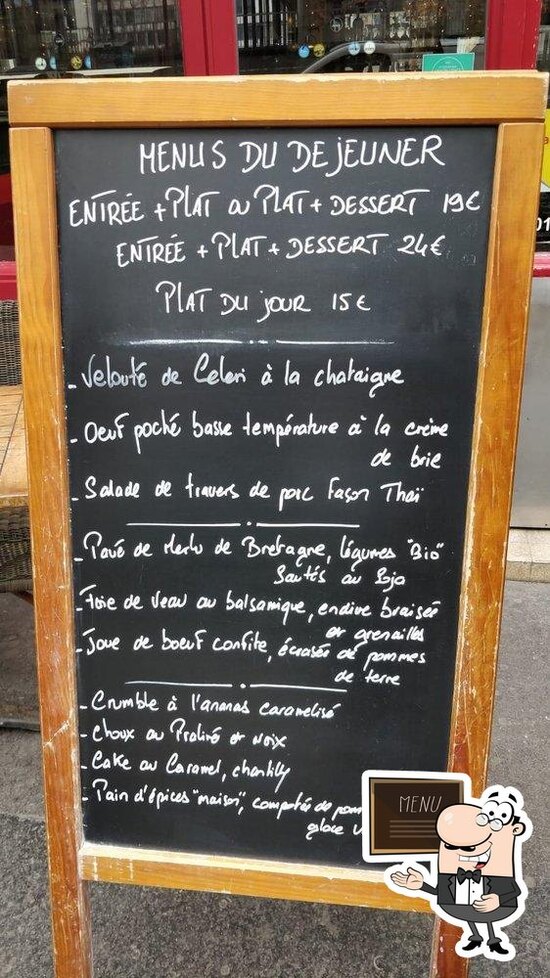 MENUS DU DEJEUNER
ENTRÉE + PLAT OU PLAT + DESSERT 19€
ENTRÉE + PLAT + DESSERT 24€
PLAT DU JOUR 15€
- Velouté de Celeri à la chataigne
- Oeuf poché basse température à la crème
de brie
- Salade de travers de porc Façon Thaï
- Pavé de Merlu de Bretagne, légumes "Bio"
Sautés au Soja
- Foie de veau au balsamique, endive braisée
et grenailles
- Joue de boeuf confite, écrasée de pommes
de terre
- Crumble à l'ananas caramelisé
- Choux au Praliné et Noix
- Cake au Caramel, chantilly
- Pain d'épices "maison", compotée de
glace
MENU